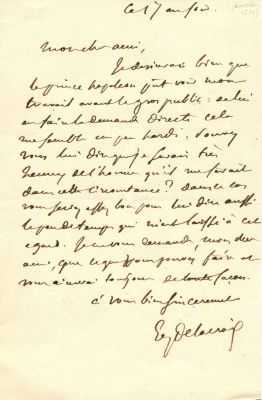 ce 17 au soir.
Mon cher ami,
Je désirerais bien que
le prince Napoléon pût voir mon
travail avant le gros public: de lui
en faire la demande directe cela
me semble un peu hardi. Pouvez
vous lui dire que je serais très
heureux de l'honneur qu'il me ferait
dans cette circonstance? Dans ce cas
vous seriez assez bon pour lui dire aussi
le peu de temps qui m'est laissé à cet
égard. Je ne vous demande mon cher
ami, que ce que vous pouvez faire et
vous aimerai toujours de toute façon.
à vous bien sincèrement
Eug Delacroix